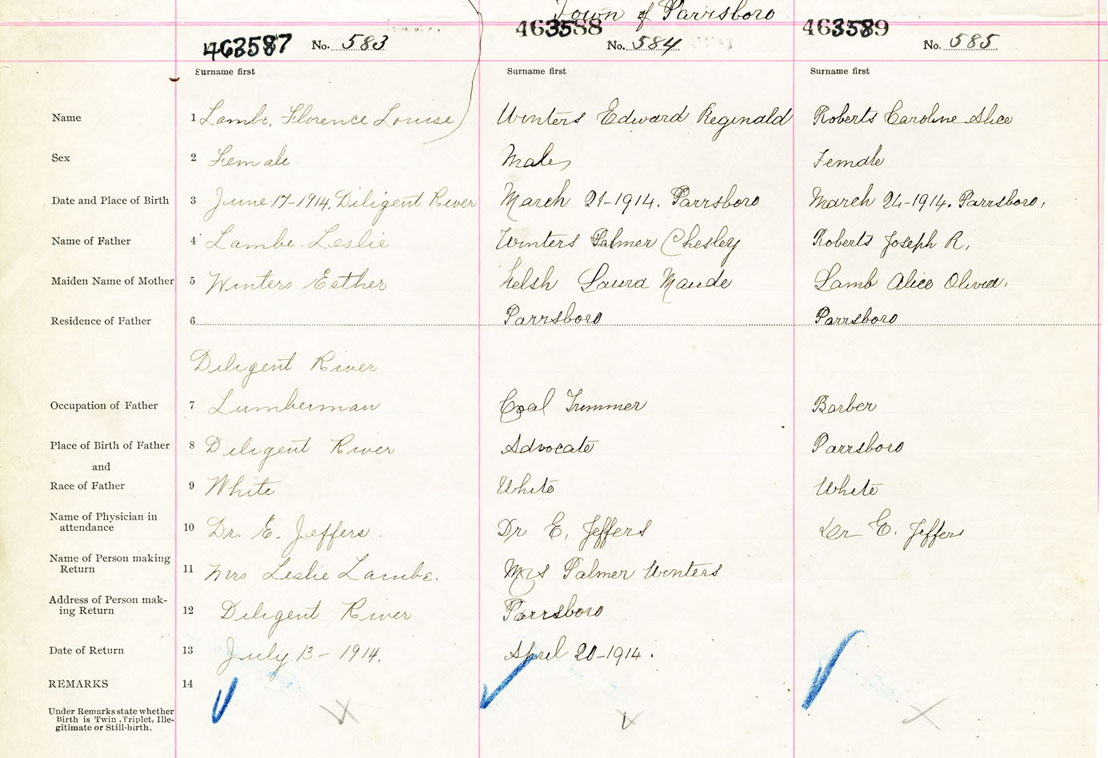 Town of Parrsboro
463587 No. 583 463588 No. 584 463589 No. 585
Surname first Surname first Surname first
Name 1 Lambe, Florence Louise Winters Edward Reginald Roberts Caroline Alice
Sex 2 Female Male Female
Date and Place of Birth 3 June 17-1914. Diligent River March 21-1914. Parrsboro March 24-1914. Parrsboro,
Name of Father 4 Lambe. Leslie Winters Palmer Chesley Roberts Joseph R.
Maiden Name of Mother 5 Winters Esther Welsh Laura Maude Lamb Alice Olivia.
Residence of Father 6 Parrsboro Parrsboro
Diligent River
Occupation of Father 7 Lumberman Coal Trimmer Barber
Place of Birth of Father 8 Diligent River Advocate Parrsboro
and
Race of Father 9 White White White
Name of Physician in
attendance 10 Dr. E. Jeffers. Dr E. Jeffers Dr E. Jeffers
Name of Person making
Return 11 Mrs Leslie Lambe. Mrs Palmer Winters
Address of Person mak-
ing Return 12 Diligent River Parrsboro
Date of Return 13 July 13-1914. April 20-1914.
REMARKS 14
Under Remarks state whether
Birth is Twin, Triplet, Ille-
gitimate or Still-birth.